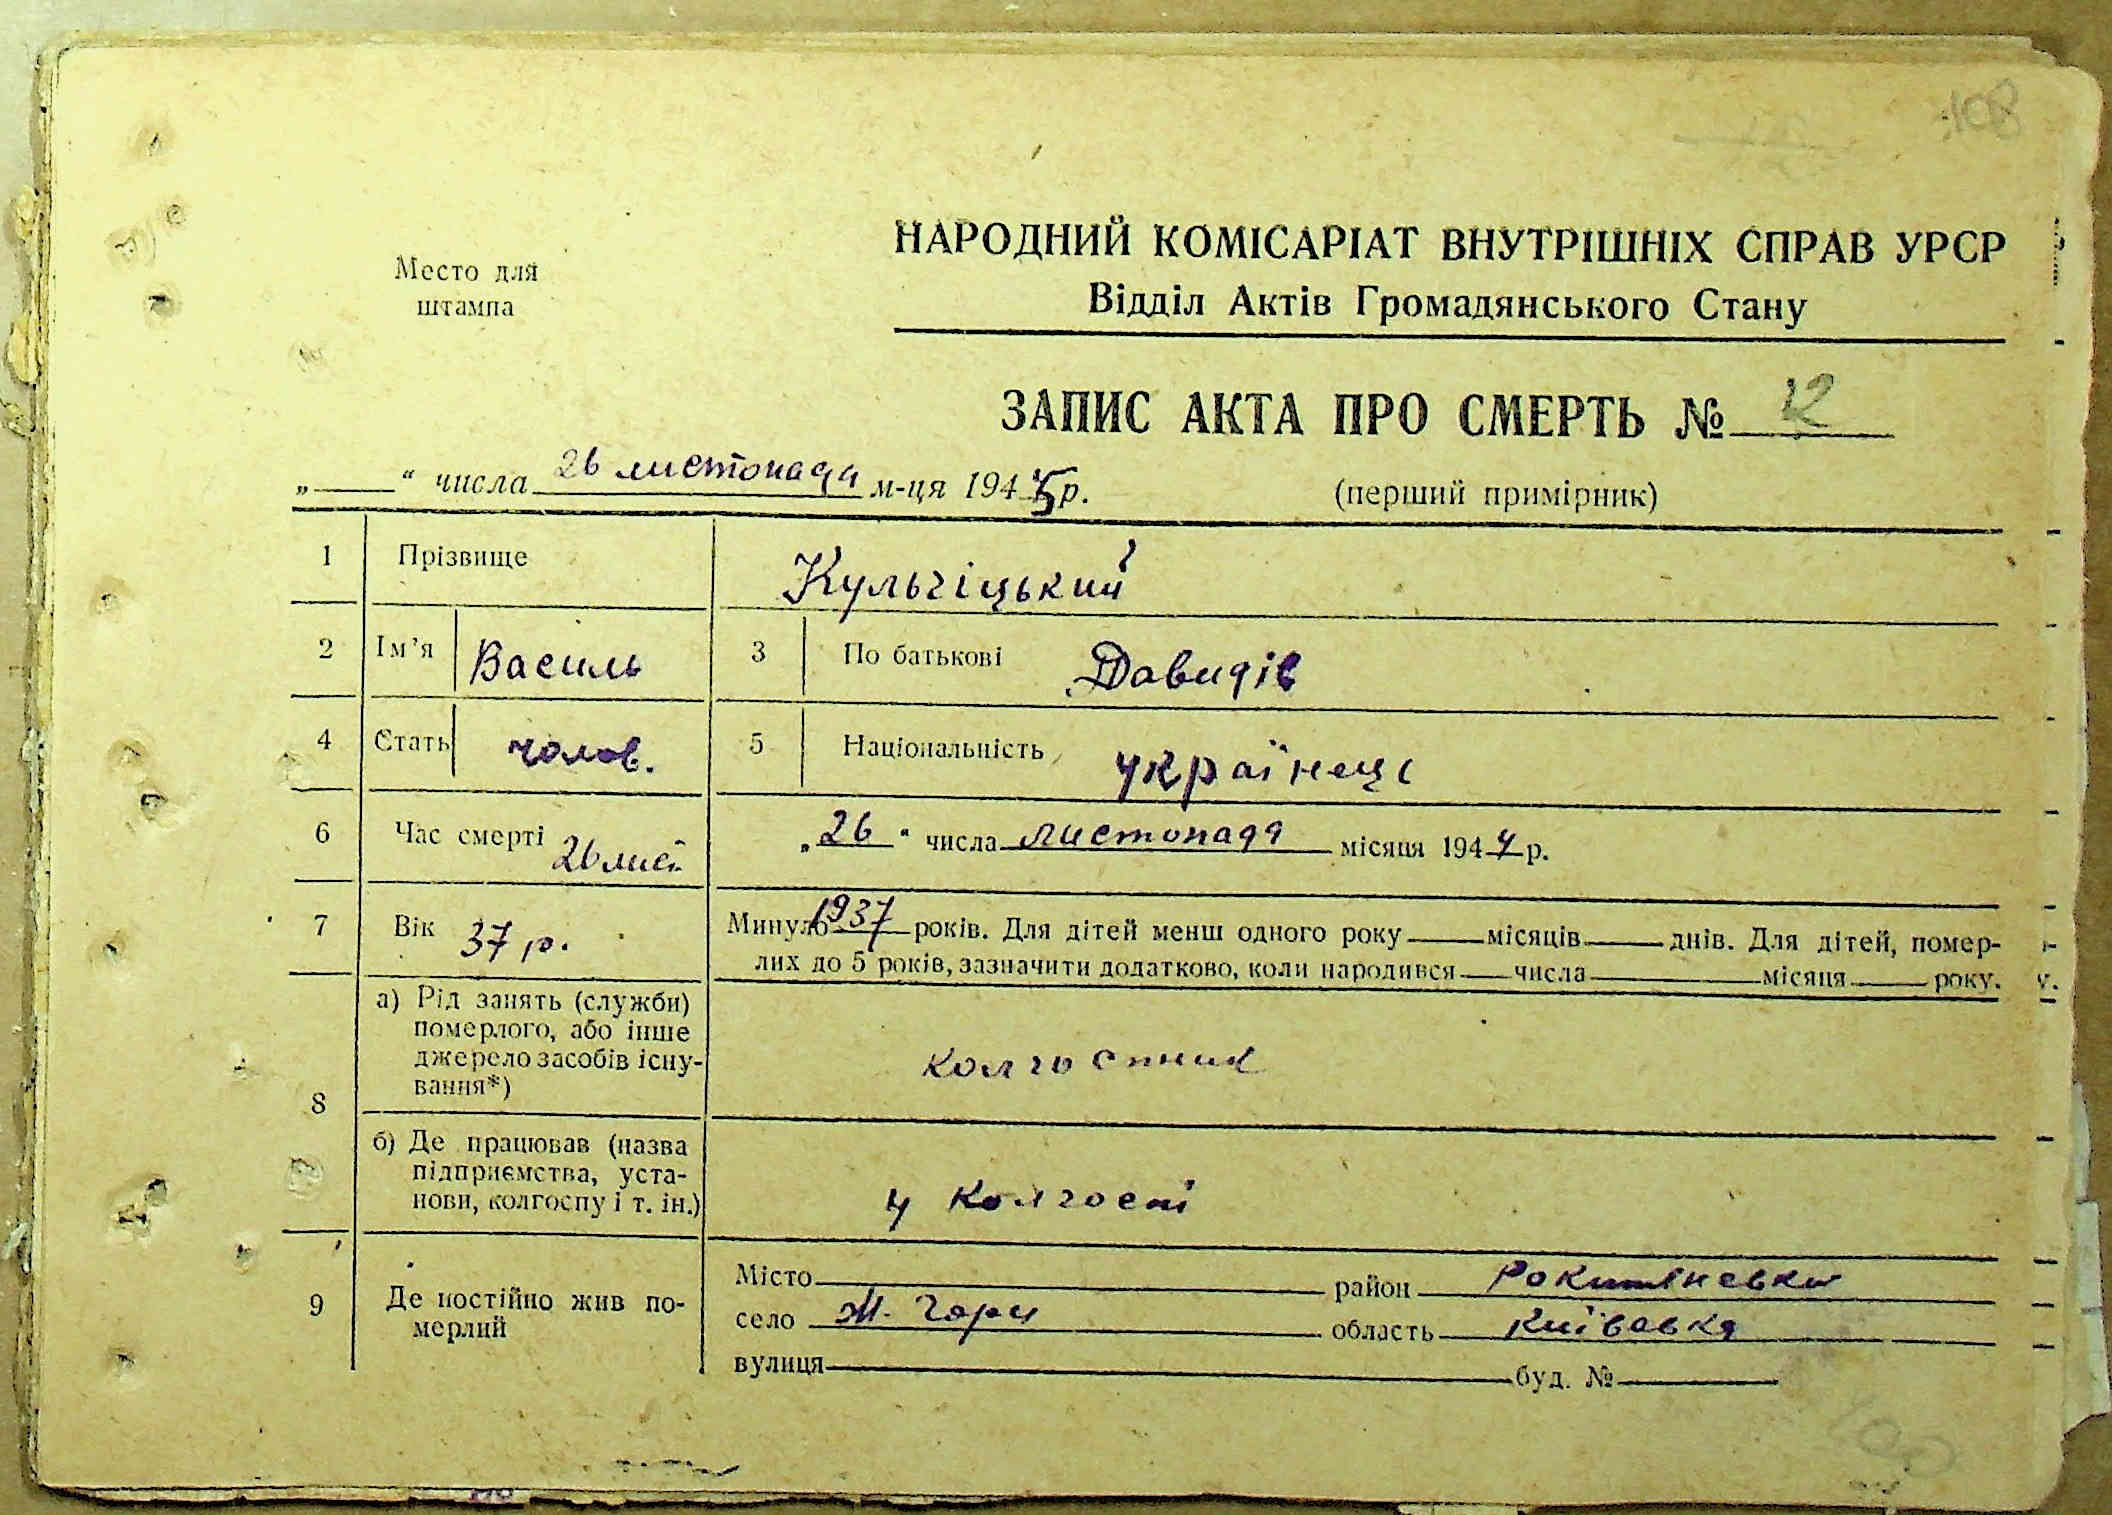 108
Место для
штампа
НАРОДНИЙ КОМІСАРІАТ ВНУТРІШНІХ СПРАВ УРСР
Відділ Актів Громадянського Стану
ЗАПИС АКТА ПРО СМЕРТЬ № 12
„ “ числа 26 листопада м-ця 1945 р. (перший примірник)
1 Прізвище Кульчіцький
2 Ім’я Василь 3 По батькові Давидів
4 Стать чолов. 5 Національність українець
6 Час смерті 26 лист. „26“ числа листопада місяця 1944 р.
7 Вік 37 р. Минуло 1937 років. Для дітей менш одного року місяців днів. Для дітей, помер-
лих до 5 років, зазначити додатково, коли народився числа місяця року.
8 а) Рід занять (служби)
померлого, або інше
джерело засобів існу-
вання*)
колгоспник
б) Де працював (назва
підприємства, уста-
нови, колгоспу і т. ін.)
у колгоспі
9 Де постійно жив по-
мерлий
Місто район Рокитянська
село область Київська
вулиця буд. №